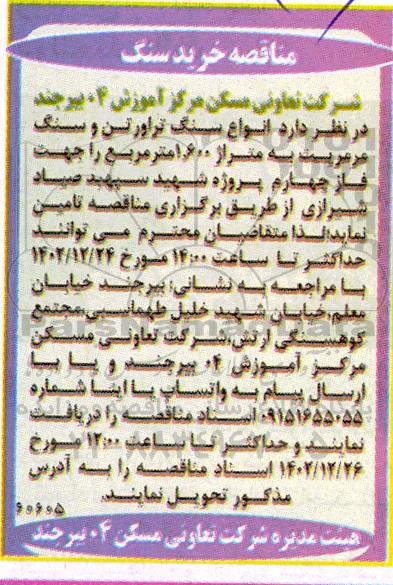 مناقصه خرید سنگ
شرکت تعاونی مسکن مرکز آموزش ۰۴ بیرجند
در نظر دارد انواع سنگ تراورتن و سنگ
مرمریت به متراژ ۱۶۰۰ متر مربع را جهت
فاز چهارم پروژه شهید سپهبد صیاد
شیرازی از طریق برگزاری مناقصه تامین
نماید؛ لذا متقاضیان محترم می توانند
حداکثر تا ساعت ۱۴:۰۰ مورخ ۱۴۰۲/۱۲/۲۴
با مراجعه به نشانی: بیرجند خیابان
معلم، خیابان شهید خلیل طهماسبی، مجتمع
کوهسنگی ارتش، شرکت تعاونی مسکن
مرکز آموزش ۰۴ بیرجند و یا با
ارسال پیام به واتساپ یا ایتا شماره
۰۹۱۵۱۶۵۵۰۵۵ اسناد مناقصه را دریافت
نمایند و حداکثر تا ساعت ۱۲:۰۰ مورخ
۱۴۰۲/۱۲/۲۶ اسناد مناقصه را به آدرس
مذکور تحویل نمایند.
هیئت مدیره شرکت تعاونی مسکن ۰۴ بیرجند
ParsNamadData